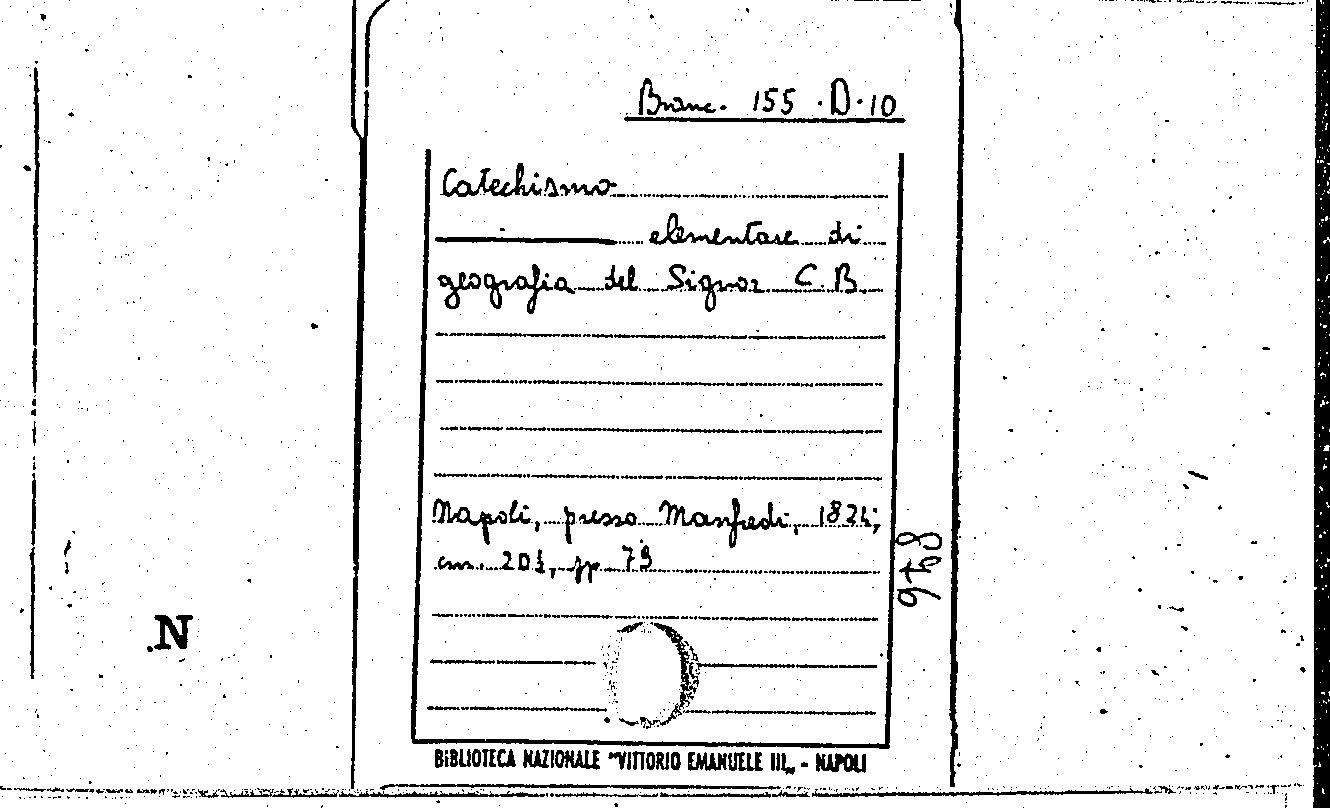 Branc. 155 . D. 10
Catechismo
elementare di
geografia del Signor C. B.
Napoli, presso Manfredi, 1824;
cm. 20½, pp 79
N
BIBLIOTECA NAZIONALE "VITTORIO EMANUELE III„ - NAPOLI